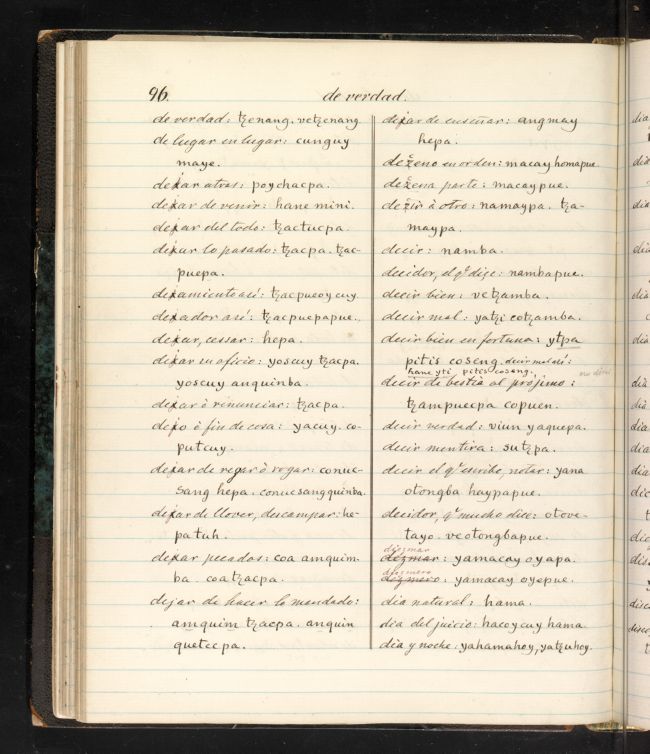 96.
de verdad.
de verdad: tzenang. vetzenang
de lugar en lugar: cunguy
maye.
dexar atras: poychacpa.
dexar de venir: hane mini.
dexar del todo: tzactucpa.
dexar lo pasado: tzacpa. tzac-
puepa.
dexamiento asi: tzacpucoycuy
dexador asi: tzacpuepapue.
dexar, cessar: hepa.
dexar en oficio: yoscuy tzacpa.
yoscuy anquinba.
dexar ò renunciar: tzacpa.
dexo ò fin de cosa: yacuy. co-
putcuy.
dexar de regar ò rogar: conuc-
sang hepa. conucsangquinba.
dexar de llover, descampar: he-
pa tuh.
dexar pecados: coa amquim-
ba. coatzacpa.
dejar de hacer lo mandado:
amquim tzacpa. anquin
quetecpa.
dexar de enseñar: angmay
hepa.
dezeno en orden: macay homapue
dezena parte: macaypue.
dezir à otro: namaypa. tza-
maypa.
decir: namba.
decidor, el qe dize: nambapue.
decir bien: vetzamba.
decir mal: yatzi cotzamba.
decir bien en fortuna: ytpa
pitis coseng. decir mal asi:
hane yti pitis coseng.
decir de bestia al prójimo:
tzampuecpa copuen.
decir verdad: viun yaquepa.
decir mentira: sutzpa.
decir el qe escribe, notar: yana
otongba haypapue.
decidor, qe mucho dice: otove-
tayo. veotongbapue.
diezmar
dezmar: yamacay oyapa.
diezmero
dezmero: yamacay oyepue.
dia natural: hama.
dia del juicio: hacoycuy hama
dia y noche: yahamahoy, yatzuhoy.